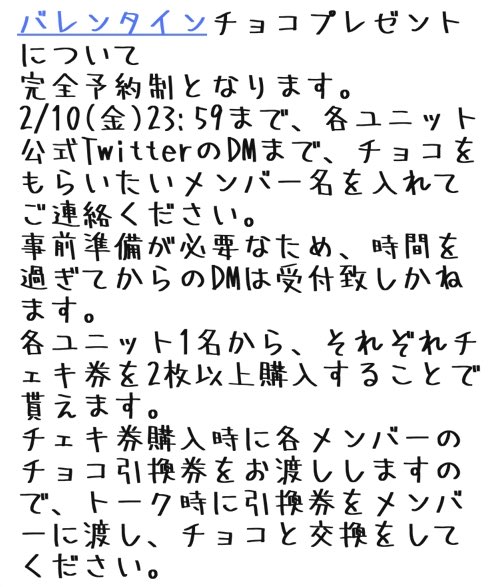 バレンタインチョコプレゼント
について
完全予約制となります。
2/10(金)23:59まで、各ユニット
公式TwitterのDMまで、チョコを
もらいたいメンバー名を入れて
ご連絡ください。
事前準備が必要なため、時間を
過ぎてからのDMは受付致しかね
ます。
各ユニット1名から、それぞれチ
ェキ券を2枚以上購入することで
貰えます。
チェキ券購入時に各メンバーの
チョコ引換券をお渡ししますの
で、トーク時に引換券をメンバ
ーに渡し、チョコと交換をして
ください。